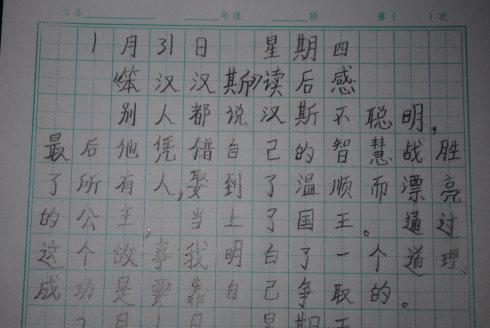 年级 班 第( )次
1月31日 星期四
《笨汉汉斯》读后感
别人都说汉斯不聪明,
最后他凭借自己的智慧战胜
了所有人,娶到了温顺而漂亮
的公主,当上了国王。通过
这个故事我明白了一个道理、
成功是要靠自己争取的。
月 日 星期五